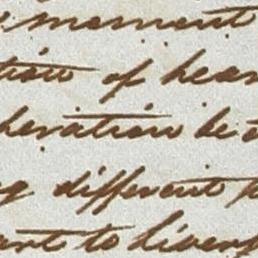 moment
tion of hear
heration be
different
ant to liver